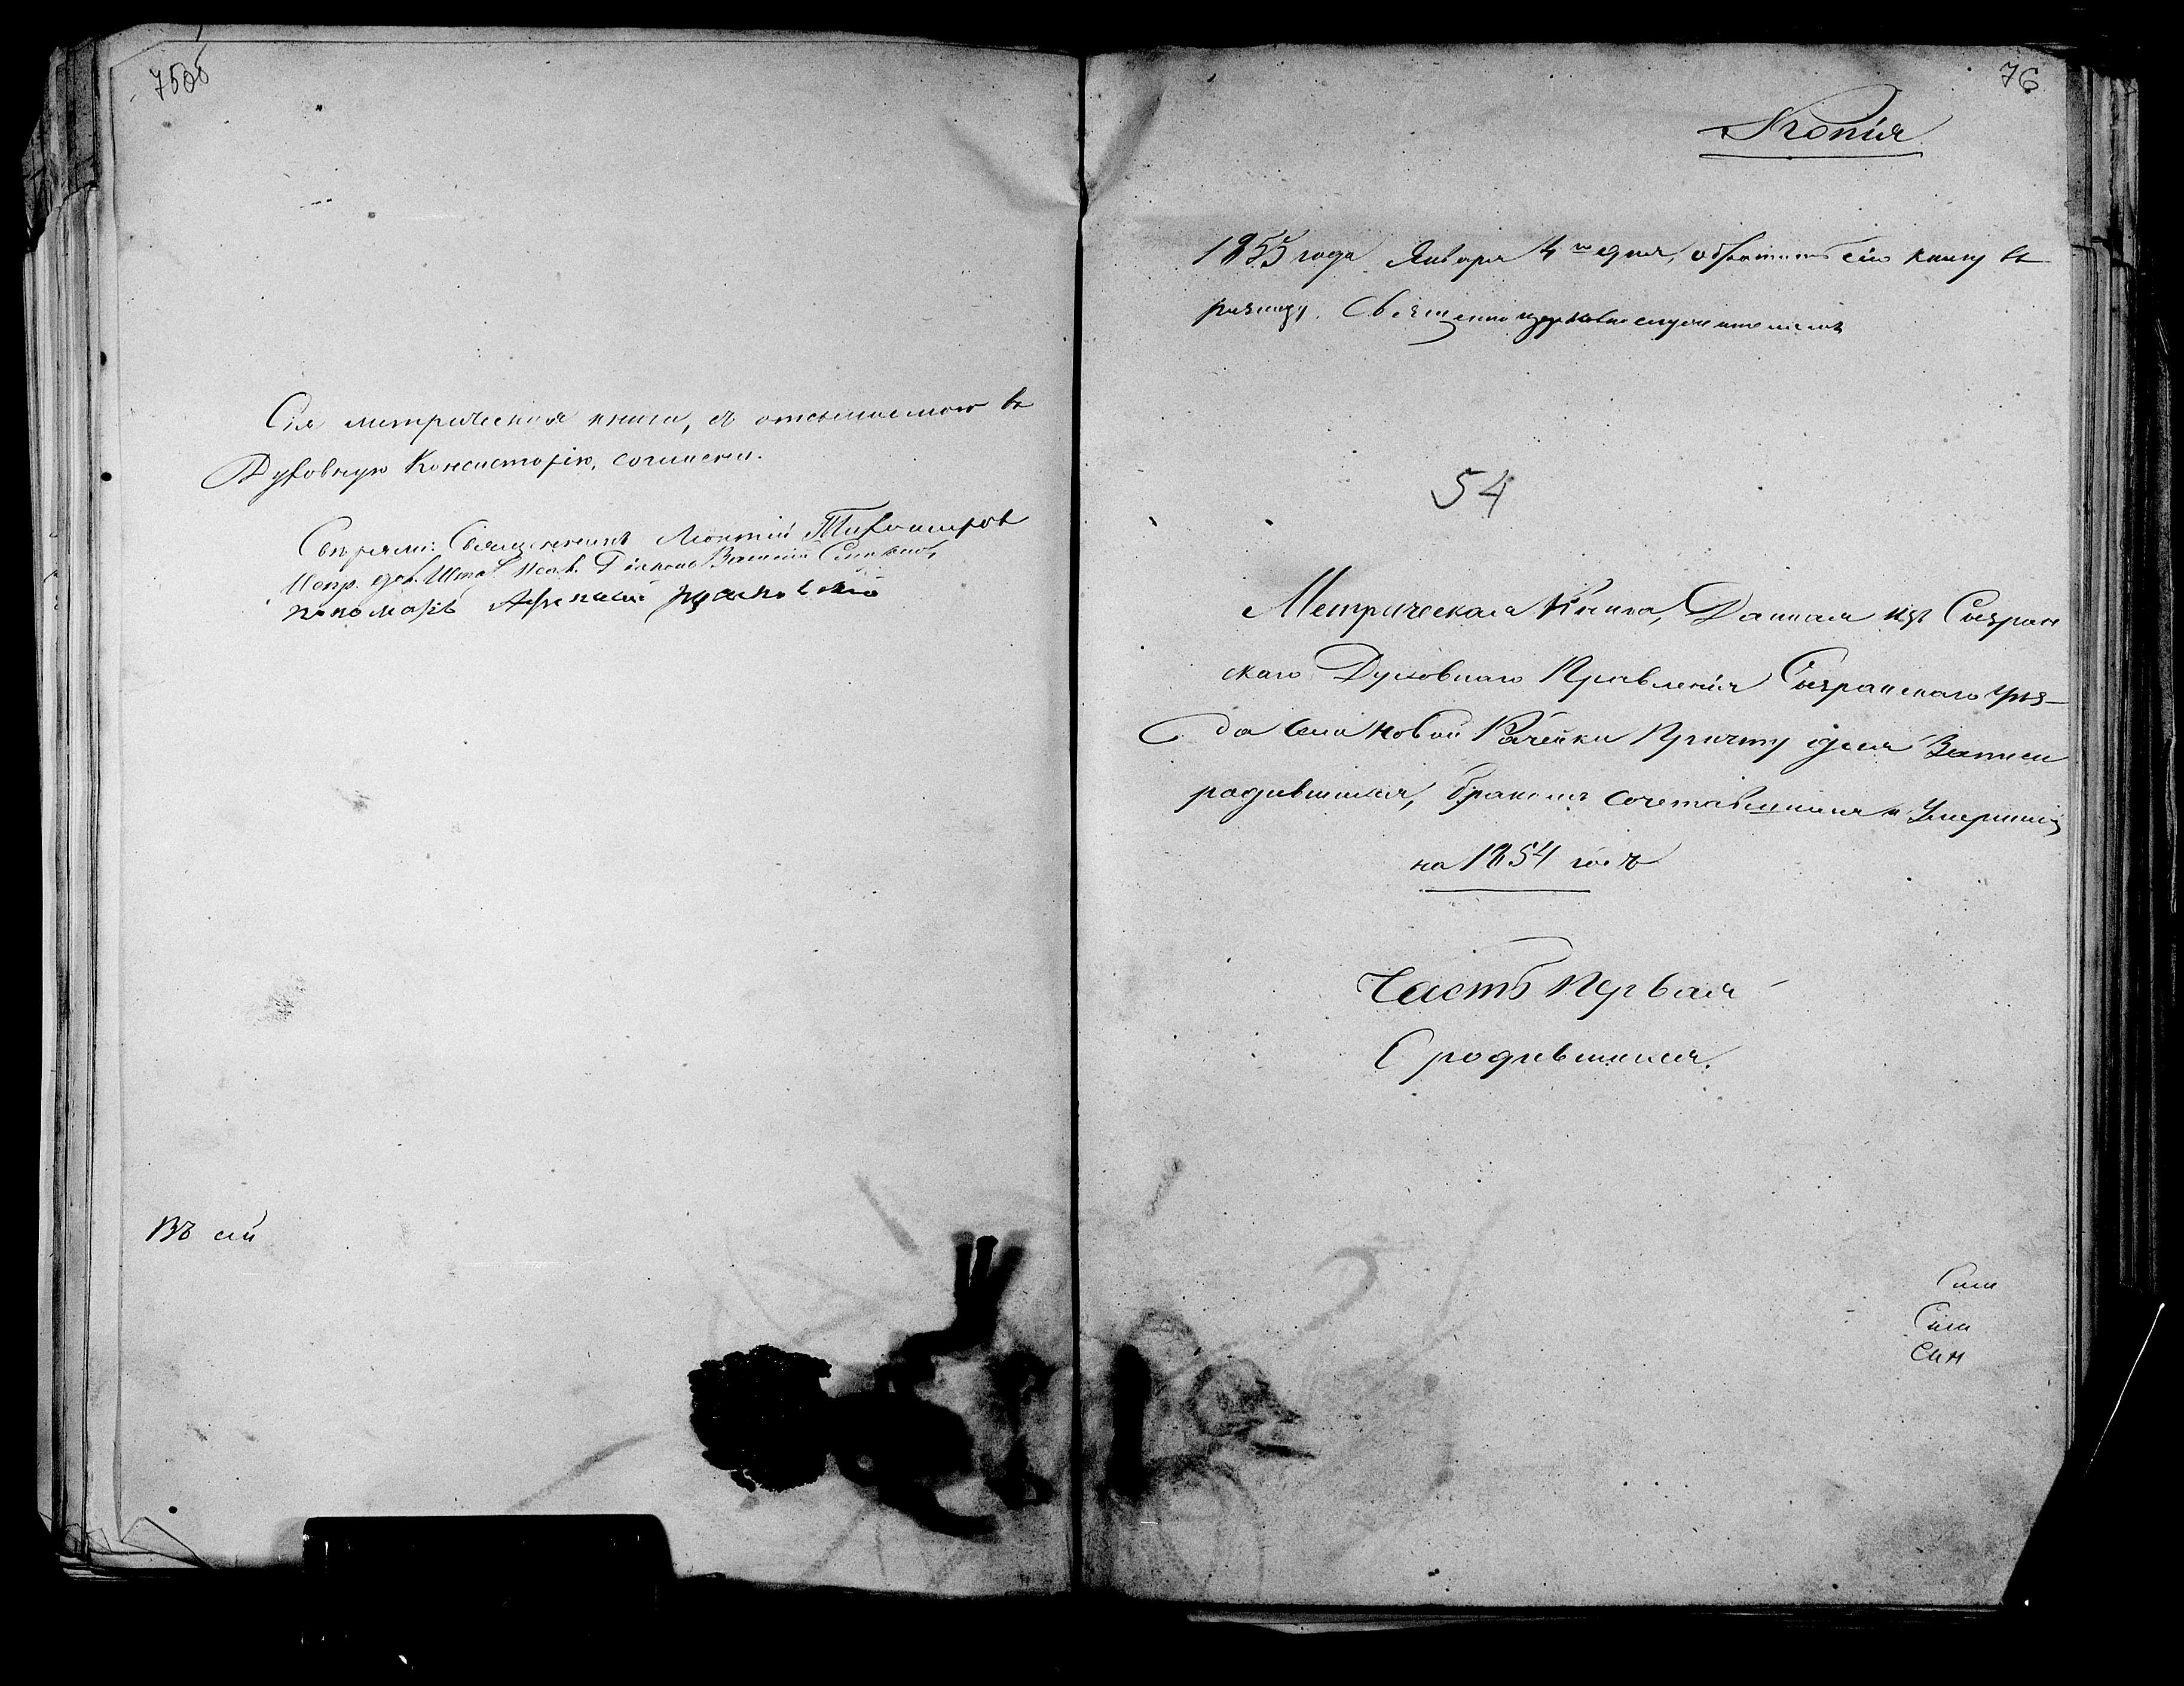 75об
Сія метрическая книга, съ отсылаемою въ
Духовную Консисторію, согласна.
Свѣряли: Священникъ Леонтій Тихомиров
Испр. дол. Штат. Псал. Діаконъ Василій Смирновъ
пономарь Афанасій
Въ сей
76
Копія
1855 года Января 4го дня, обратить сію книгу въ
ризницу. Священноцерковнослужителямъ
54
Метрическая Книга, Данная изъ Сызран
скаго Духовнаго Правленія Сызранскаго уѣз-
да села Новой Рачейки Причту для Записи
родившихся, бракомъ сочетавшихся и Умершихъ
на 1854 годъ
Часть Первая
О родившихся.